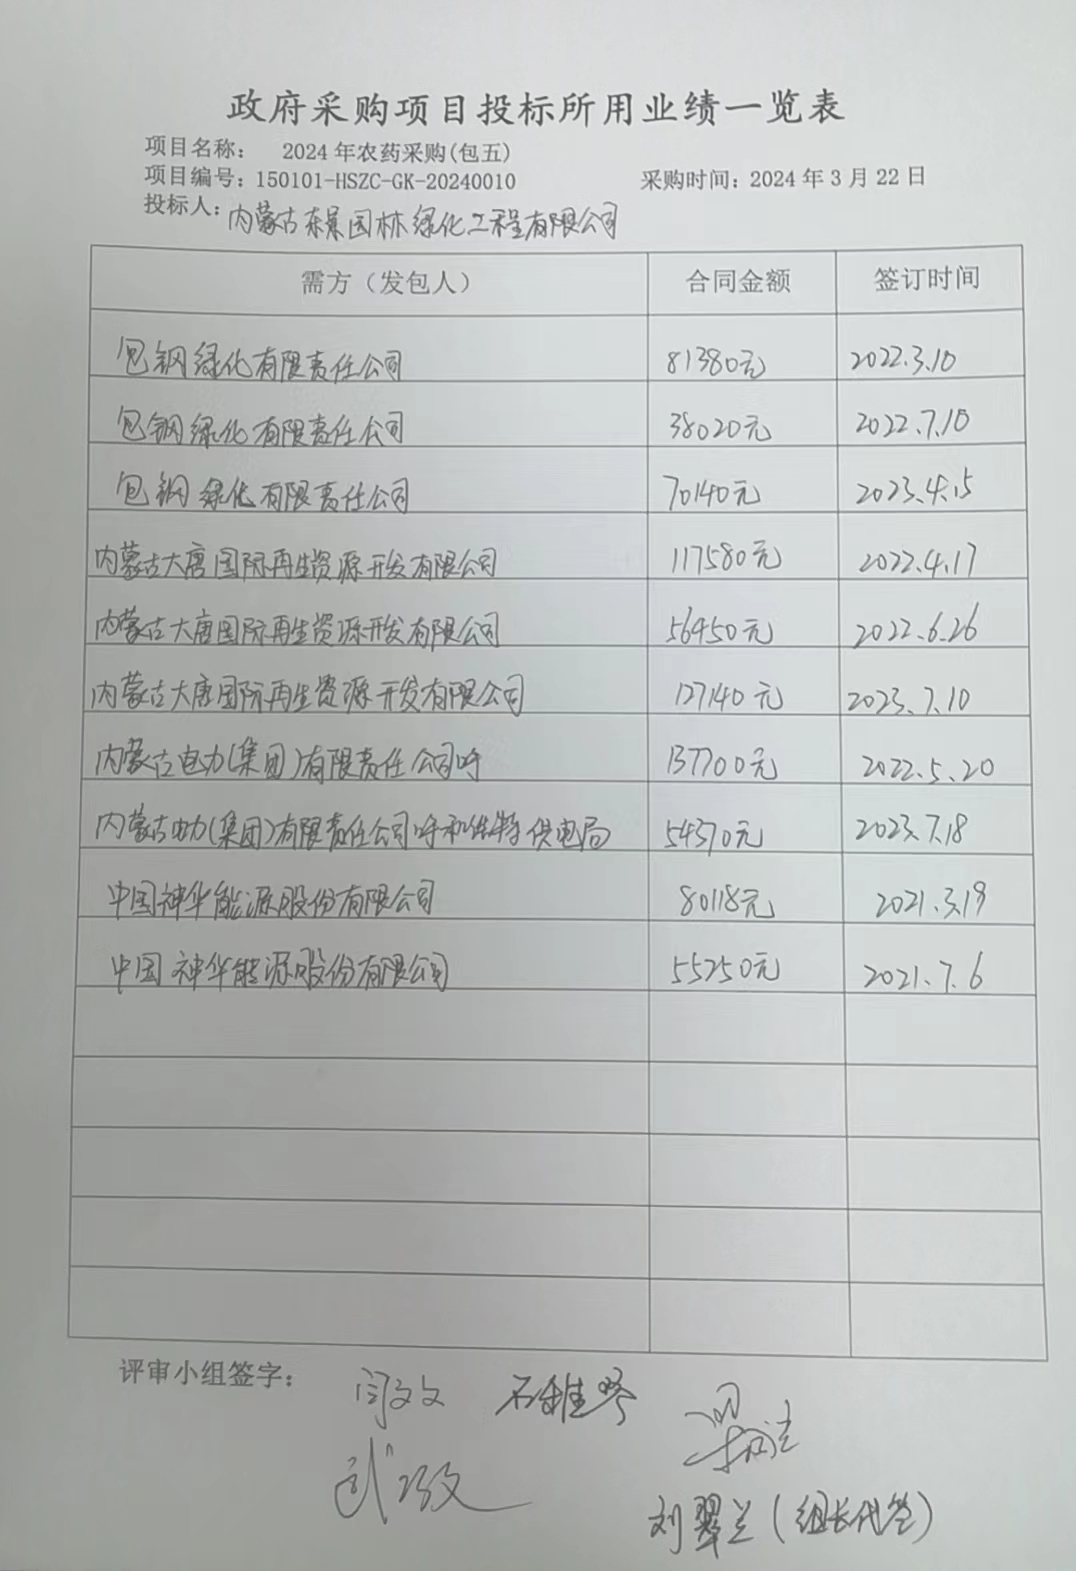 政府采购项目投标所用业绩一览表
项目名称： 2024年农药采购(包五)
项目编号：150101-HSZC-GK-20240010 采购时间：2024年3月22日
投标人：内蒙古东景园林绿化工程有限公司
需方（发包人） 合同金额 签订时间
包钢绿化有限责任公司 81380元 2022.3.10
包钢绿化有限责任公司 38020元 2022.7.10
包钢绿化有限责任公司 70140元 2023.4.15
内蒙古大唐国际再生资源开发有限公司 117580元 2022.4.17
内蒙古大唐国际再生资源开发有限公司 56450元 2022.6.26
内蒙古大唐国际再生资源开发有限公司 127140元 2023.7.10
内蒙古电力(集团)有限责任公司呼 137700元 2022.5.20
内蒙古电力(集团)有限责任公司呼和浩特供电局 54370元 2023.7.18
中国神华能源股份有限公司 80118元 2021.3.19
中国神华能源股份有限公司 55250元 2021.7.6
评审小组签字：
闫文文 石雅琴
刘翠兰(组长代签)